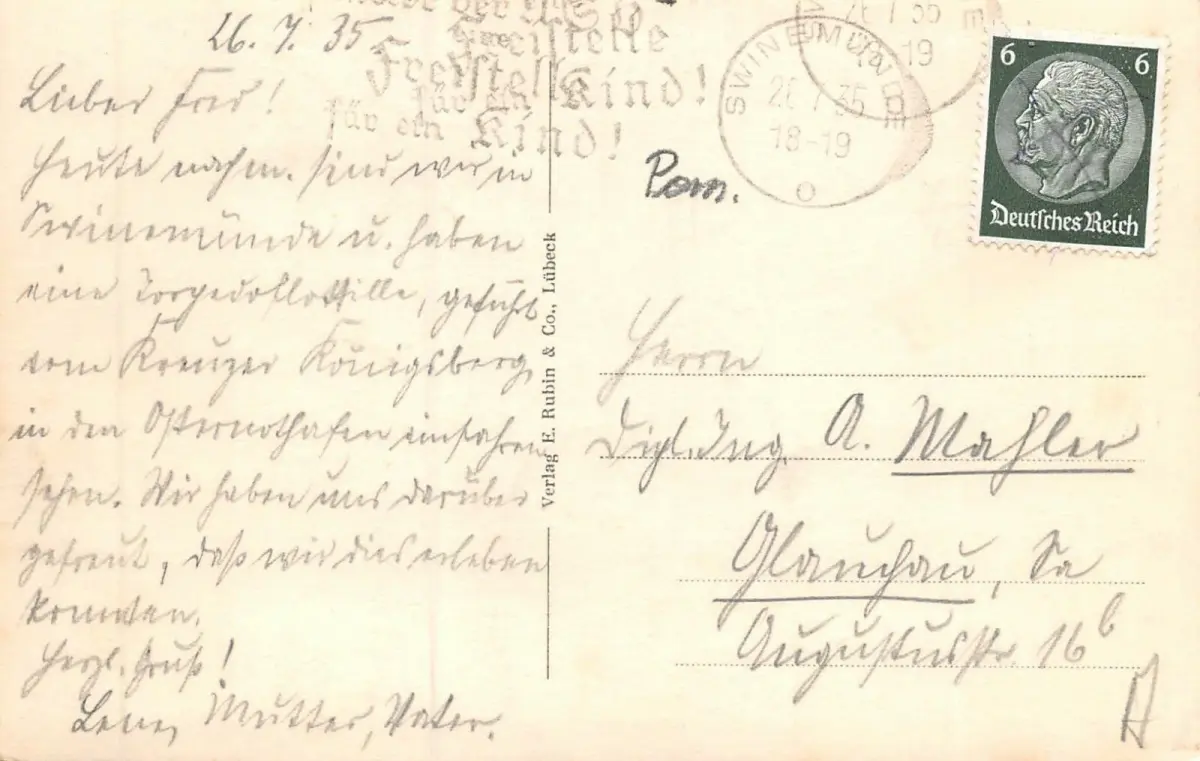 26.7.35.
Lieber Fred!
Heute nachm. sind wir in
Swinemünde u. haben
eine Torpedoflottille, geführt
vom Kreuzer Königsberg,
in den Osternothafen einfahren
sehen. Wir haben uns darüber
gefreut, daß wir dies erleben
konnten.
Herzl. Gruß!
Lene, Mutter, Vater.
Verlag E. Rubin & Co., Lübeck
der NS
Freistelle
für ein Kind!
Freistelle
für ein Kind!
SWINEMÜNDE
26.7.35
18-19
o
26.7.35
19
Pom.
6 6
Deutsches Reich
Herrn
Dipl. Ing. A. Mahler
Glauchau, Sa
Augustusstr. 16b